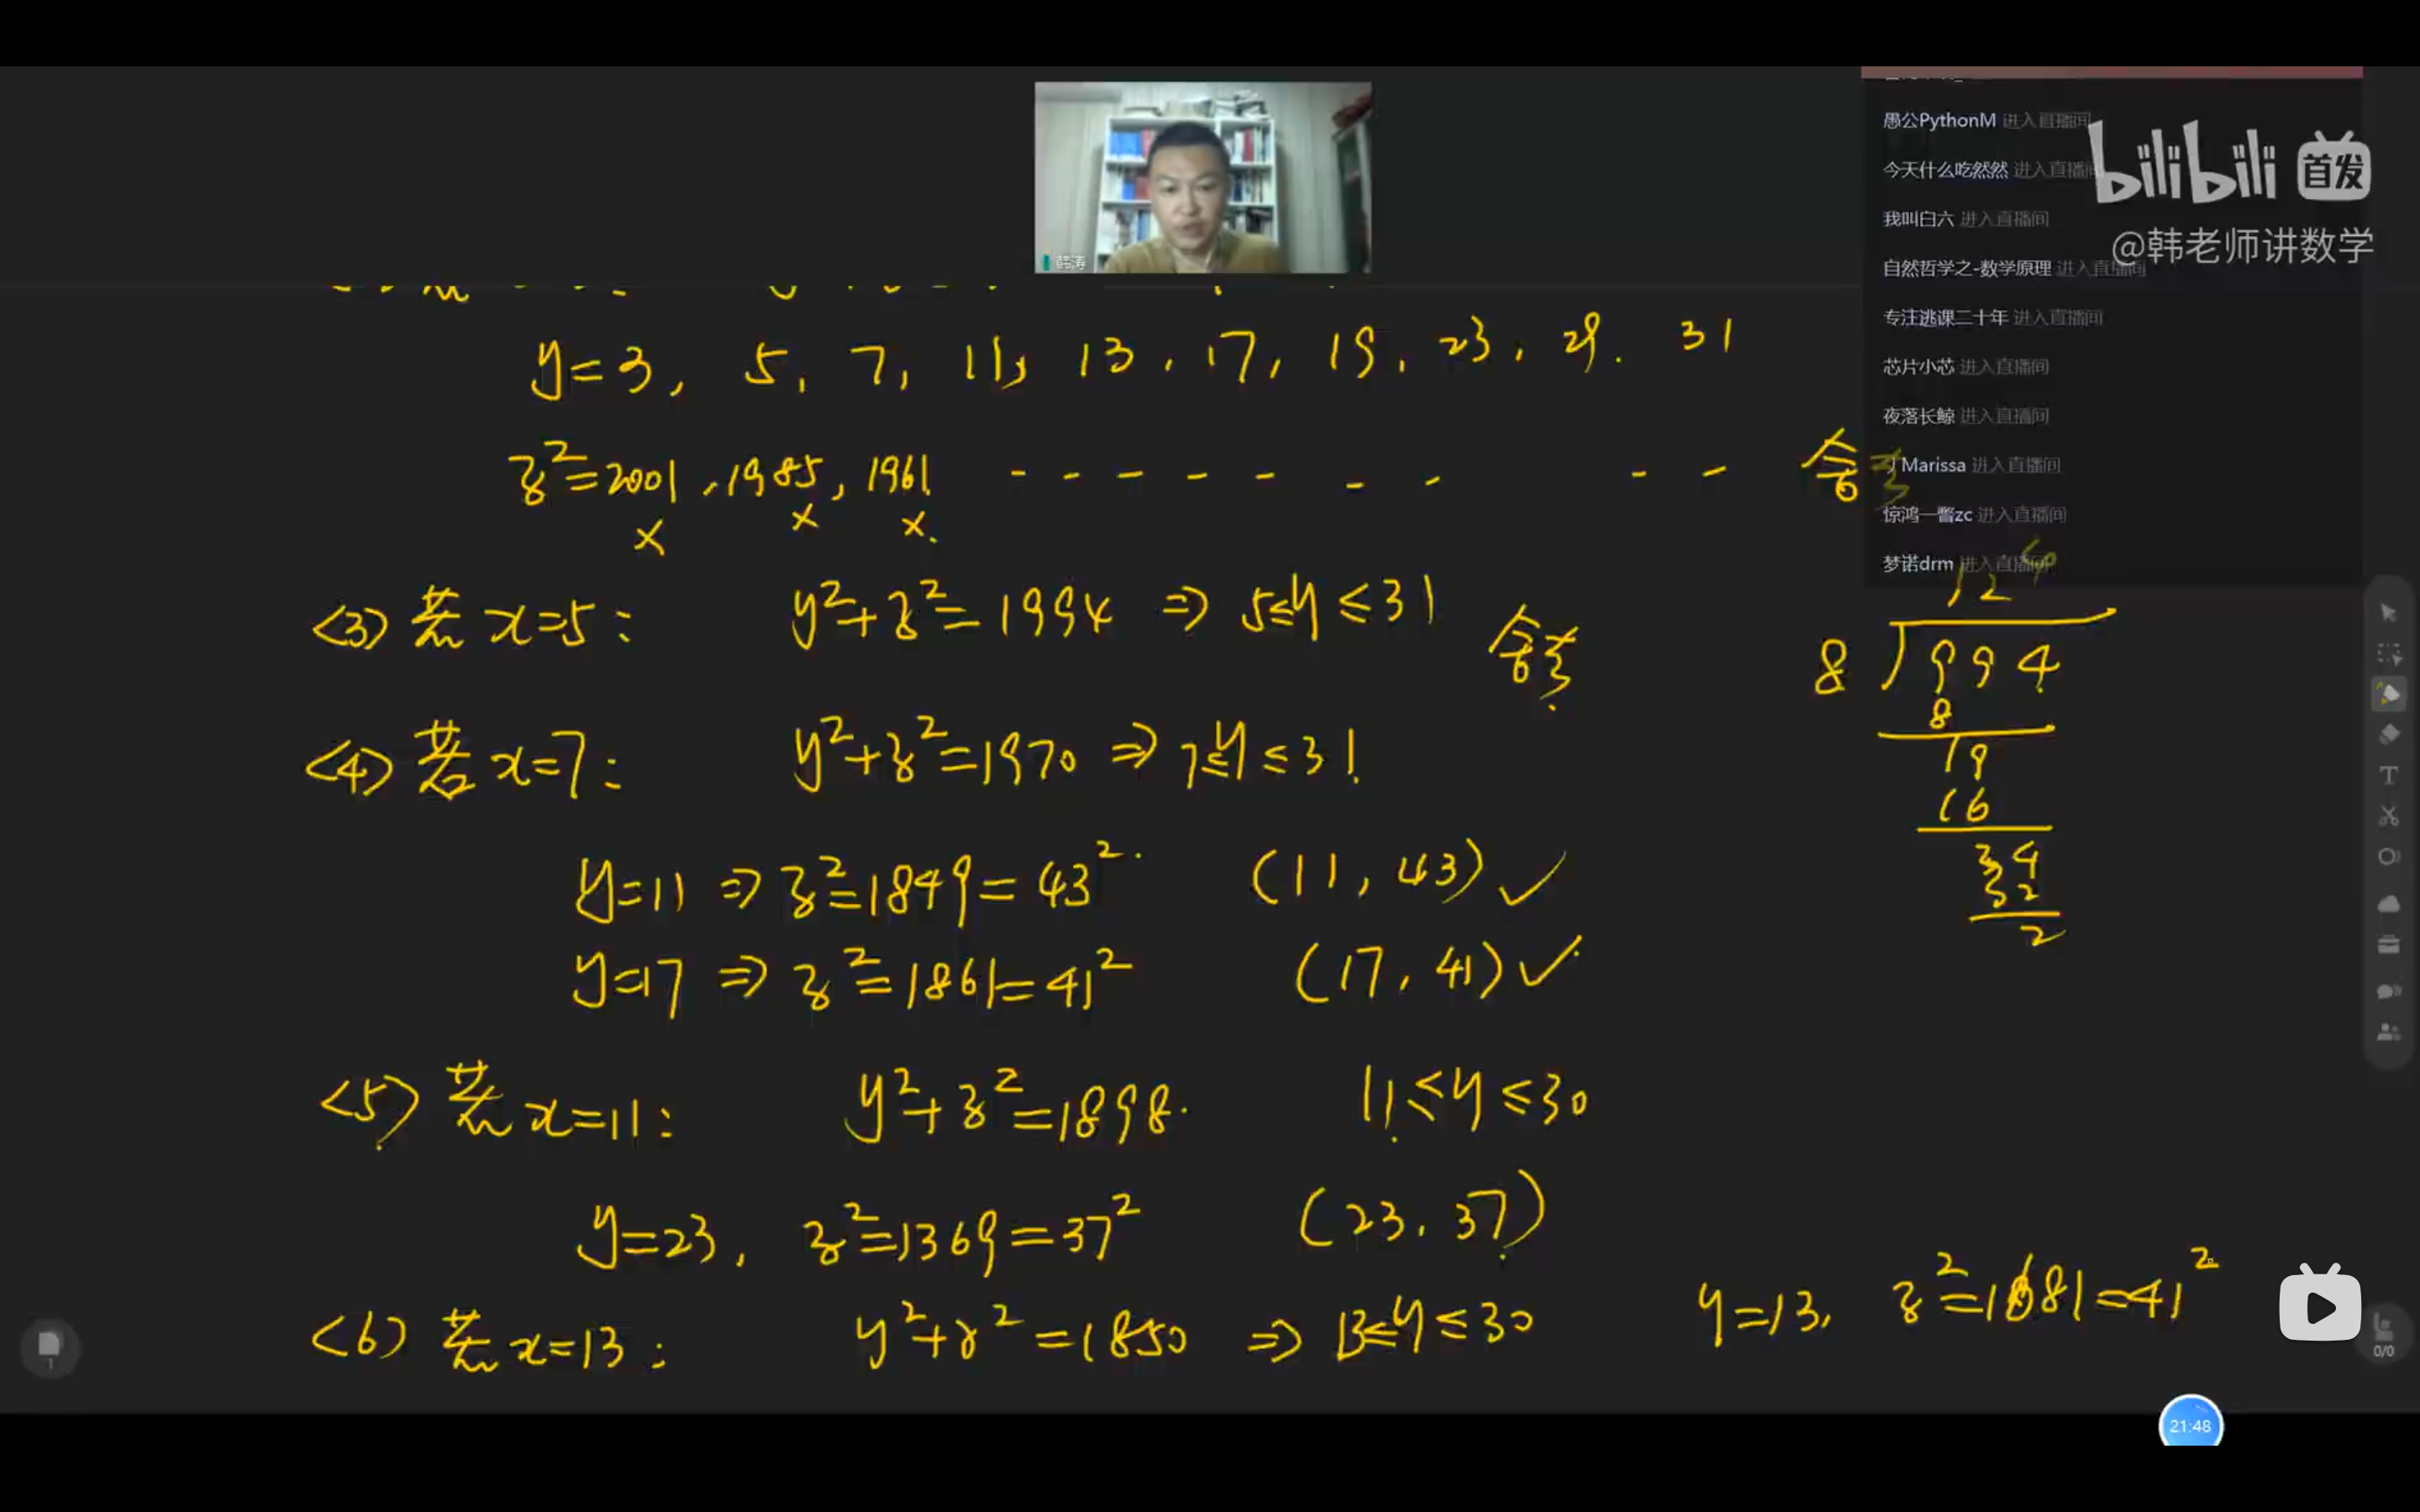 韩涛
愚公PythonM 进入直播间
今天什么吃然然 进入直播间
我叫白六 进入直播间
自然哲学之-数学原理 进入直播间
专注逃课二十年 进入直播间
芯片小芯 进入直播间
夜落长鲸 进入直播间
Marissa 进入直播间
惊鸿一瞥zc 进入直播间
梦诺drm 进入直播间
bilibili 首发
@韩老师讲数学
y=3, 5, 7, 11, 13, 17, 19, 23, 29. 31
z²=2001, 1985, 1961. - - - - - - - - - 舍去
× × ×.
<3> 若 x=5: y²+z²=1994 ⇒ 5≤y≤31 舍去.
<4> 若 x=7: y²+z²=1970 ⇒ 7≤y≤31.
y=11 ⇒ z²=1849=43². (11, 43) ✓
y=17 ⇒ z²=1861=41² (17, 41) ✓
<5> 若 x=11: y²+z²=1898. 11≤y≤30
y=23, z²=1369=37² (23, 37)
<6> 若 x=13: y²+z²=1850 ⇒ 13≤y≤30 y=13, z²=1681=41²
12
8 994
8
19
16
34
32
2
T
1
0/0
21:48